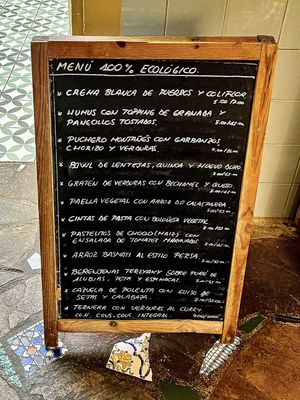 MENÚ 100% ECOLÓGICO.
* CREMA BLANCA DE PUERROS Y COLIFLOR
* HUMUS CON TOPPING DE GRANADA Y
PANECILLOS TOSTADOS
* PUCHERO MONTAÑÉS CON GARBANZOS
CHORIZO Y VERDURAS
* BOWL DE LENTEJAS, QUINOA Y HUEVO DURO
* GRATÉN DE VERDURAS CON BECHAMEL Y QUESO
* PAELLA VEGETAL CON ARROZ DE CALASPARRA
* CINTAS DE PASTA CON BOLOÑESA VEGETAL
* PASTELITOS DE CHOCLO (MAIZ) CON
ENSALADA DE TOMATES MARINADOS
* ARROZ BASMATI AL ESTILO PERSA
* BERENJENAS TERIYAKI SOBRE PURÉ DE
ALUBIAS, FETA Y ESPINACAS
* CAZUELA DE POLENTA CON GUISO DE
SETAS Y CALABAZA
* TERNERA CON VERDURAS AL CURRY
CON COUS COUS INTEGRAL